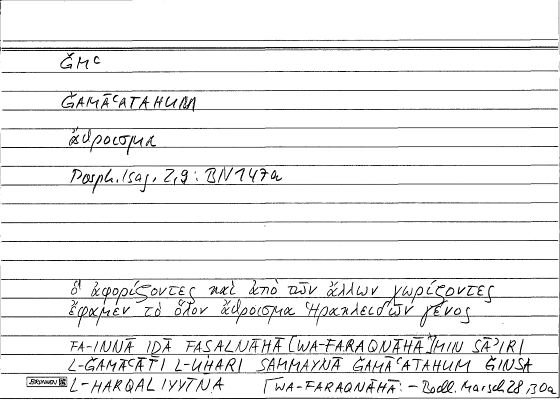 ǦMᶜ
ǦAMĀᶜATAHUM
ἄθροισμα
Porph. Isag. 2,9 : BN 147a
ὃ ἀφορίζοντες καὶ ἀπὸ τῶν ἄλλων χωρίζοντες
ἔφαμεν τὸ ὅλον ἄθροισμα Ἡρακλειδῶν γένος
FA-INNĀ IḎĀ FASALNĀHĀ ⌈WA-FARAQNĀHĀ⌉ MIN SĀʾIRI
L-ǦAMĀᶜĀTI L-UḪARI SAMMAYNĀ ǦAMĀᶜATAHUM ǦINSA
L-HARQALIYYĪNA ⌈WA-FARAQNĀHĀ: – Bodl. Marsch. 28 130a
BRUNNEN